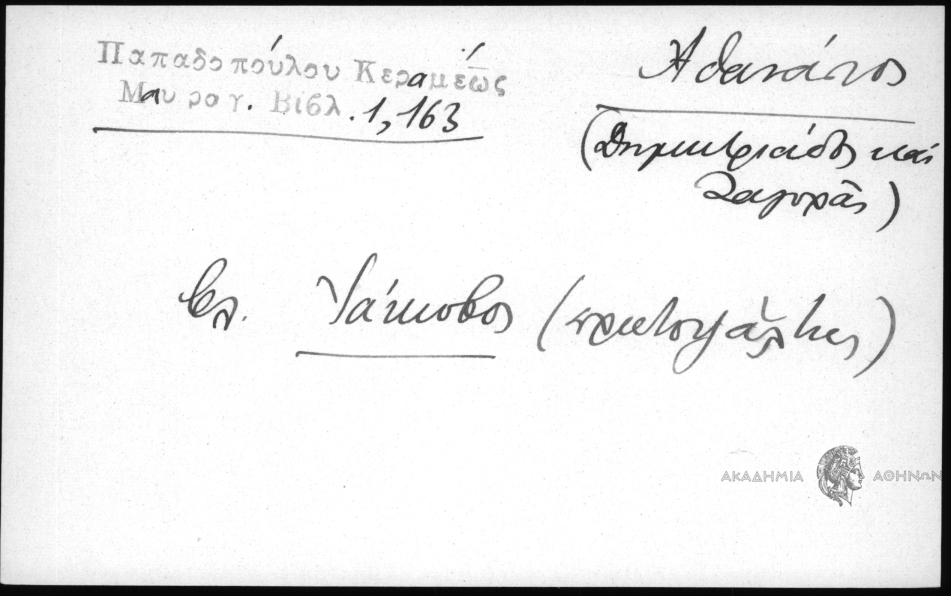 Παπαδοπούλου Κεραμέως
Μαυρογ. Βιβλ. 1, 163
Ἀθανάσιος
(Δημητριάδος καὶ
Ζαγορᾶς)
Βλ. Ἰάκωβος (πρωτοψάλτης)
ΑΚΑΔΗΜΙΑ ΑΘΗΝΩΝ